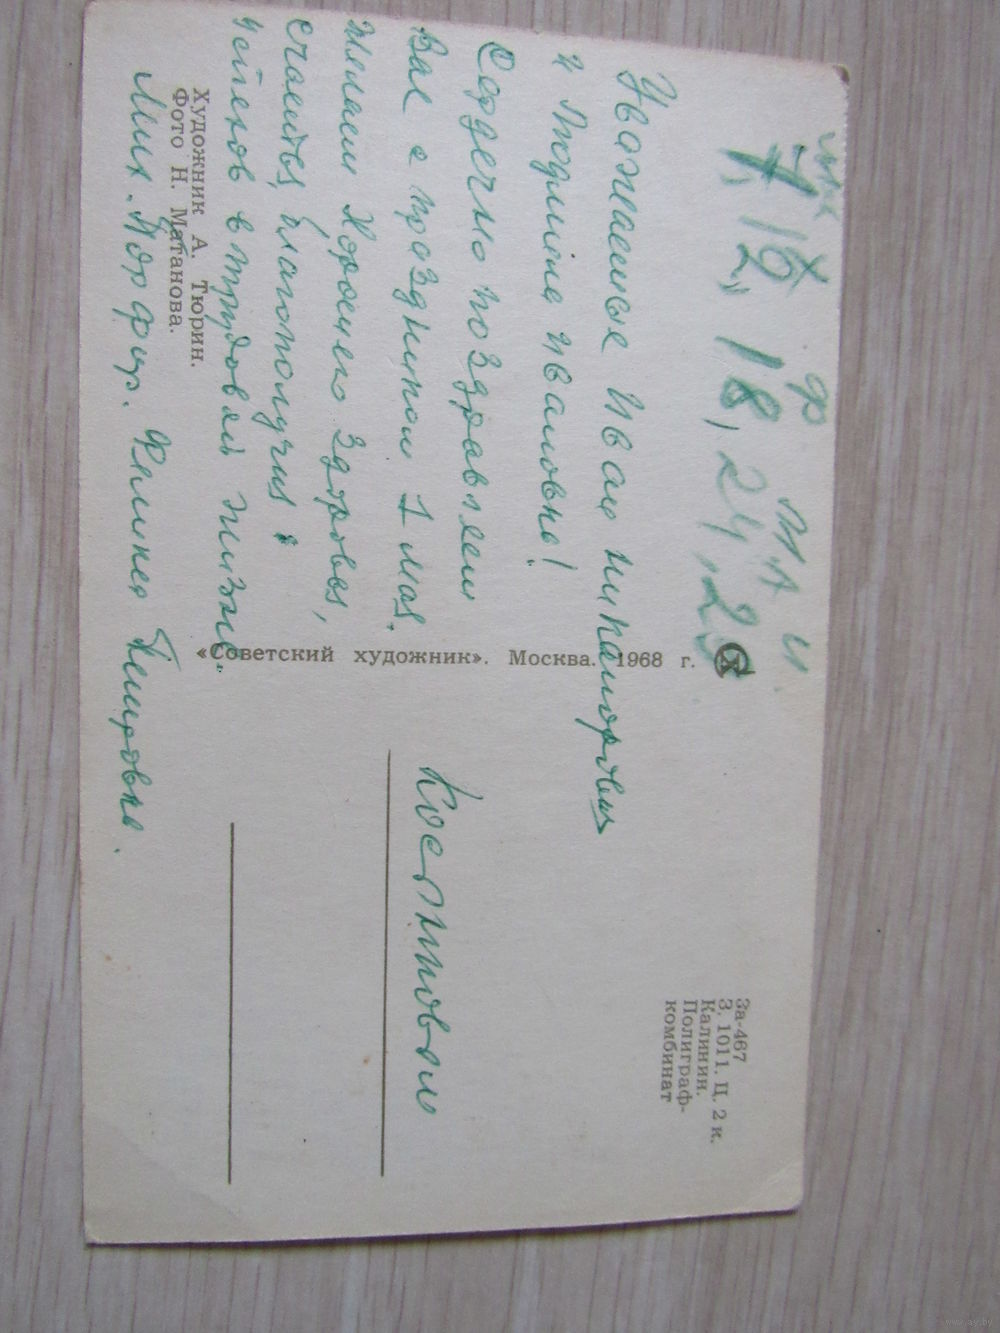 7, 16, 18, 24, 25
Уважаемые Иван Никанорович
и Людмила Ивановна!
Сердечно поздравляем
Вас с праздником 1 мая.
Желаем хорошего здоровья,
счастья, благополучия и
успехов в трудовой жизни.
Художник А. Тюрин.
Фото Н. Матанова.
«Советский художник». Москва. 1968 г.
Костиновым
За-467
З. 1011. Ц. 2 к.
Калинин.
Полиграф-
комбинат
www.ay.by